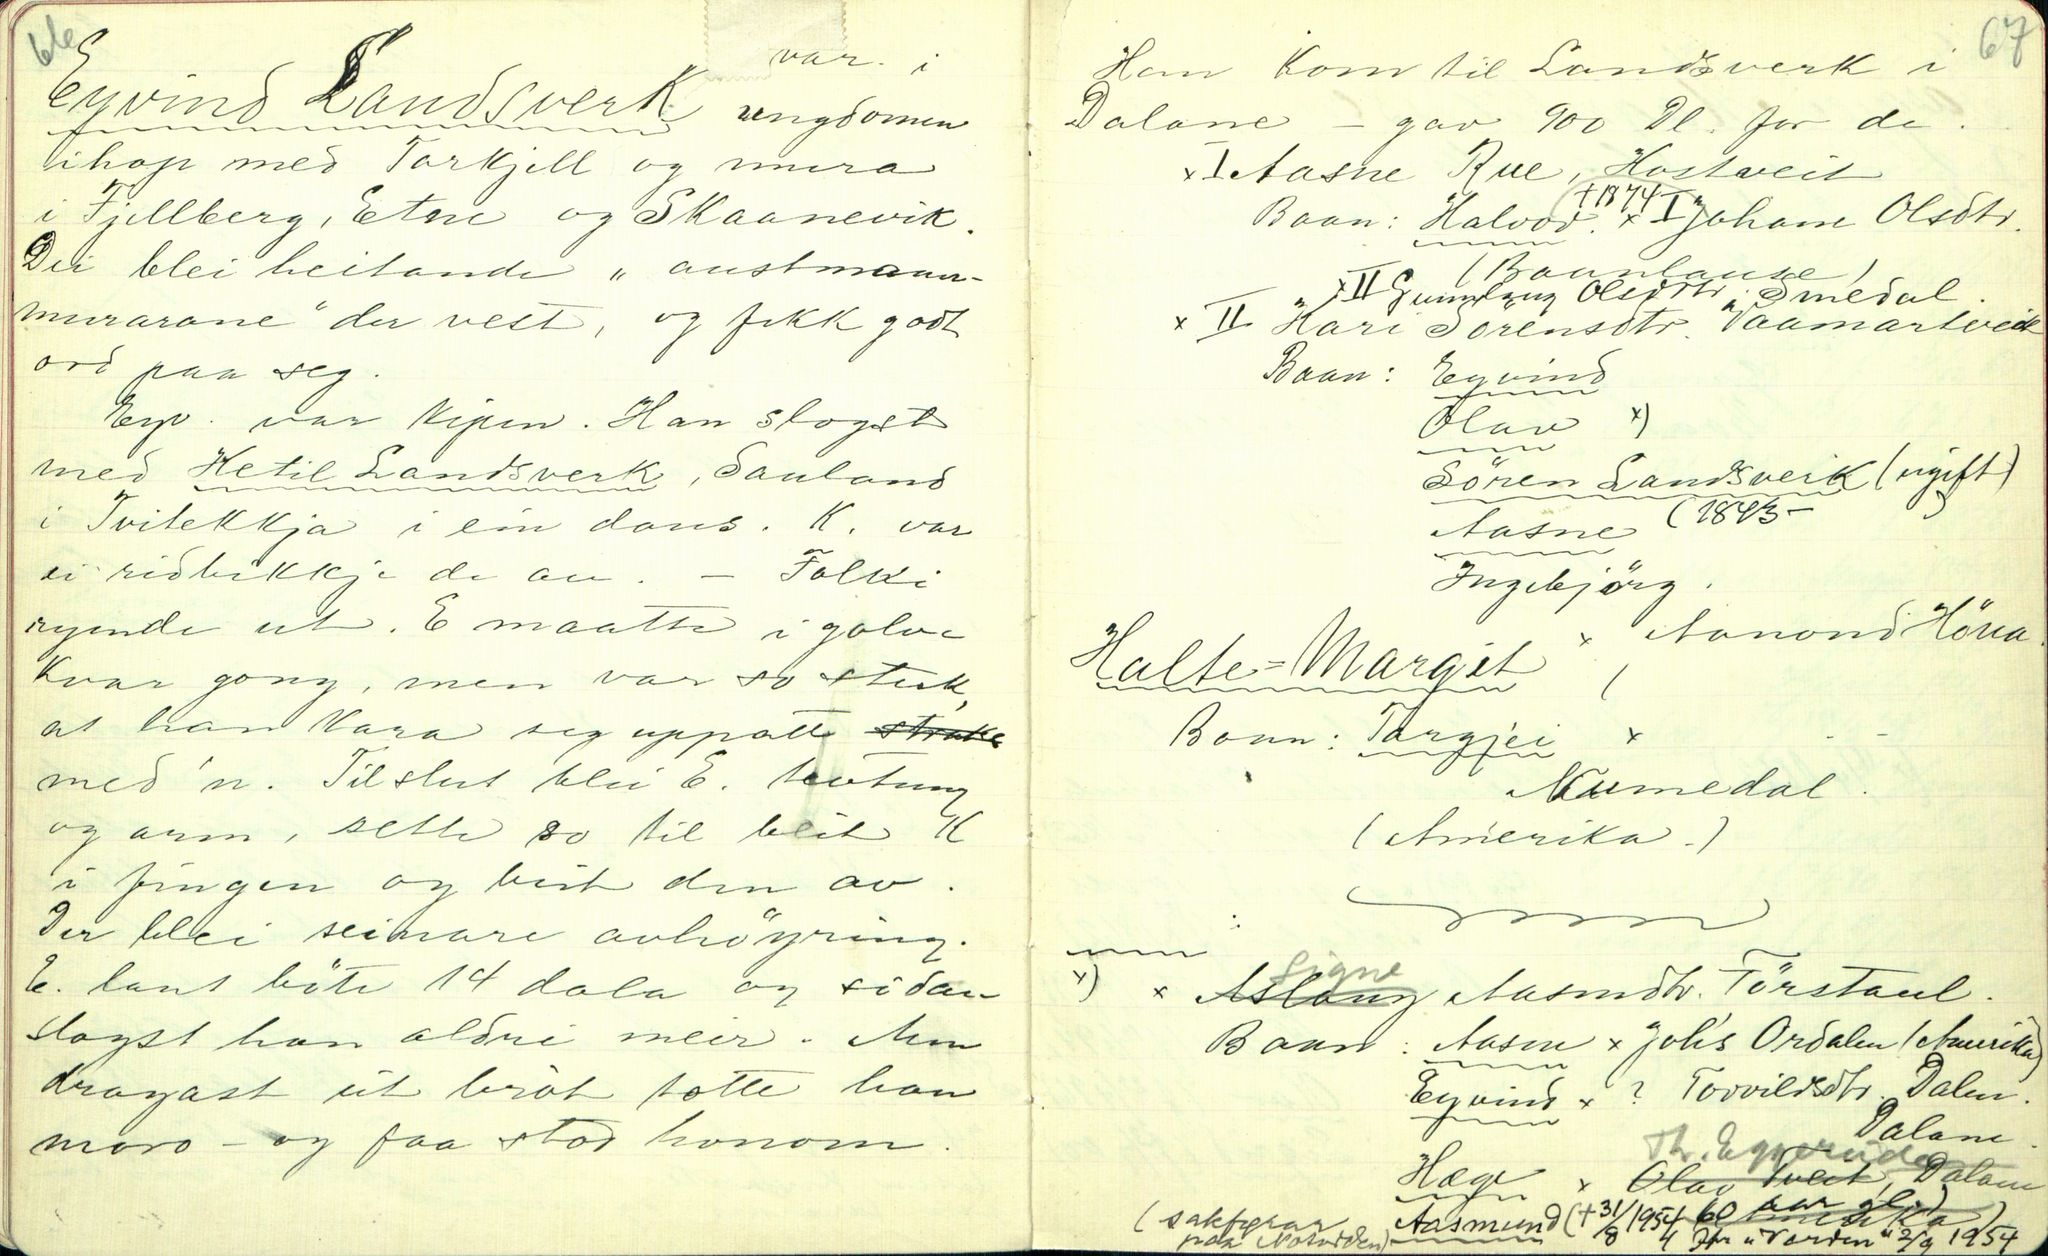 66
Eyvind Landsverk var i
ungdomen
ihop med Torkjell og mura
i Fjellberg, Etne og Skaanevik.
Dei blei heitande „austmann-
murarane" der vest, og fekk godt
ord paa seg.
Eyv. var kipen. Han slogst
med Ketil Landsverk, Sauland
i Tvitekkja i ein dans. K. var
ei ridbikkje de au. — Folki
rynde ut. E maatte i golve
kvar gong, men var so sterk,
at han kara seg uppatte strake
med 'n. Tilslut blei E.
og arm, sette so til beit K
i fingen og beit den av.
Der blei seinare avhöyring.
E. laut böte 14 dala og sidan
slogst han aldri meir. Men
dragast ut bröt totte han
moro — og faa stod honom.
67
Han kom til Landsverk i
Dalane — gav 900 Dl. for de.
x I Aasne Rue, Hostveit
Baan: Halvor. †1874 x I Johane Olsdtr.
(Baanlause)
x II Gunnlaug Olsdtr. Smedal.
x II Kari Sörensdtr. Vaamartveit
Baan: Eyvind
Olav x)
Sören Landsverk (ugift)
(1843-
Aasne
Ingebjörg.
Halte-Margit x Aanond Höna.
(
Baan: Torgjei x
Numedal.
(Amerika.)
x) x Aslaug Signe Aasmdtr. Törstaul.
Baan: Aasne x Johs Ordalen (Amerika)
Eyvind x ? Torvildsdtr. Dalen.
Dalane.
Th. Eggerude
Hæge x Olav Tveit, Dalane
(sakförar Aasmund (†31/8 1954 60 aar gl.)
paa Notodden) „Varden" 2/9 1954